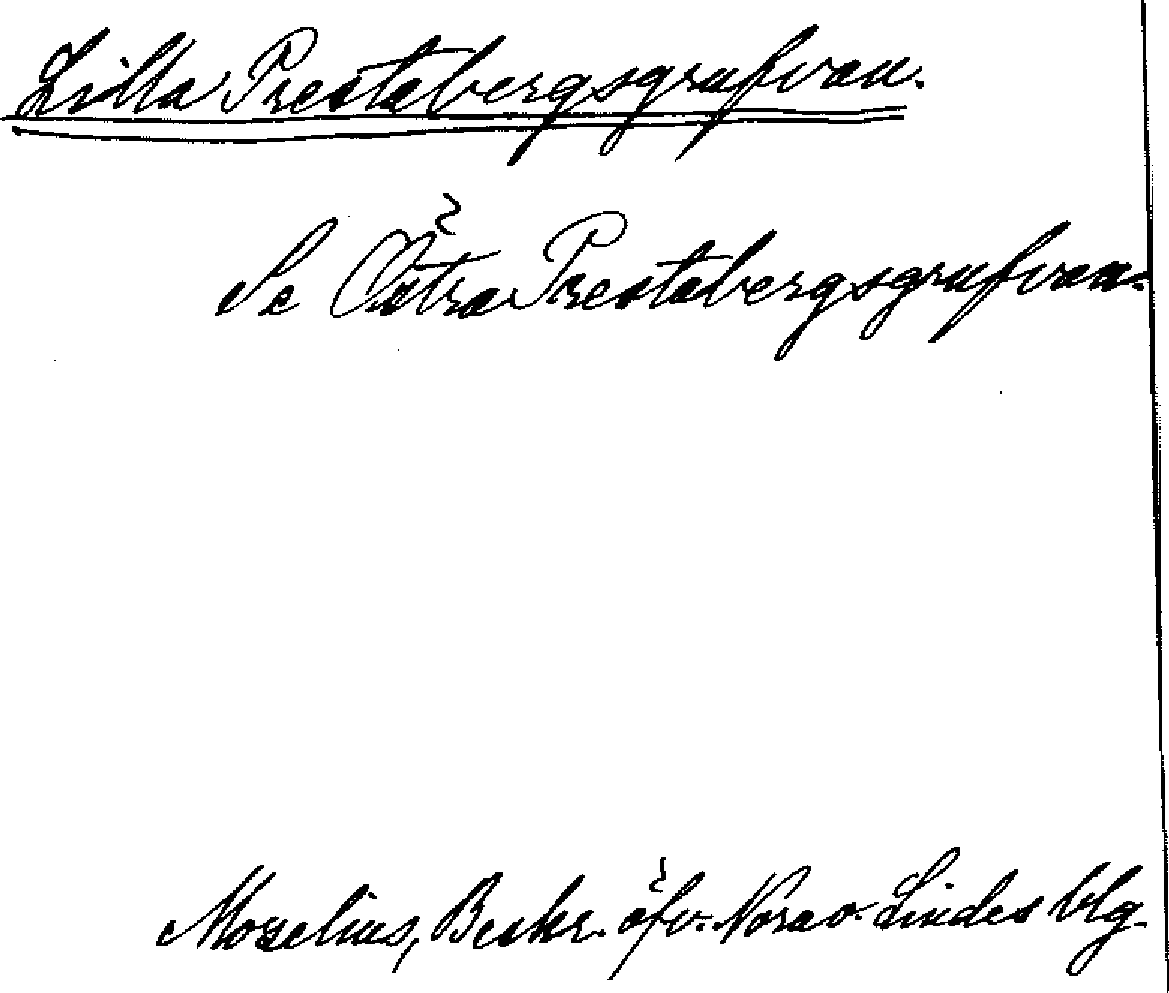 Lilla Prestabergsgrufvan.
Se Östra Prestabergsgrufvan.
Moselius, Beskr. öfv. Nora o. Lindes blg.